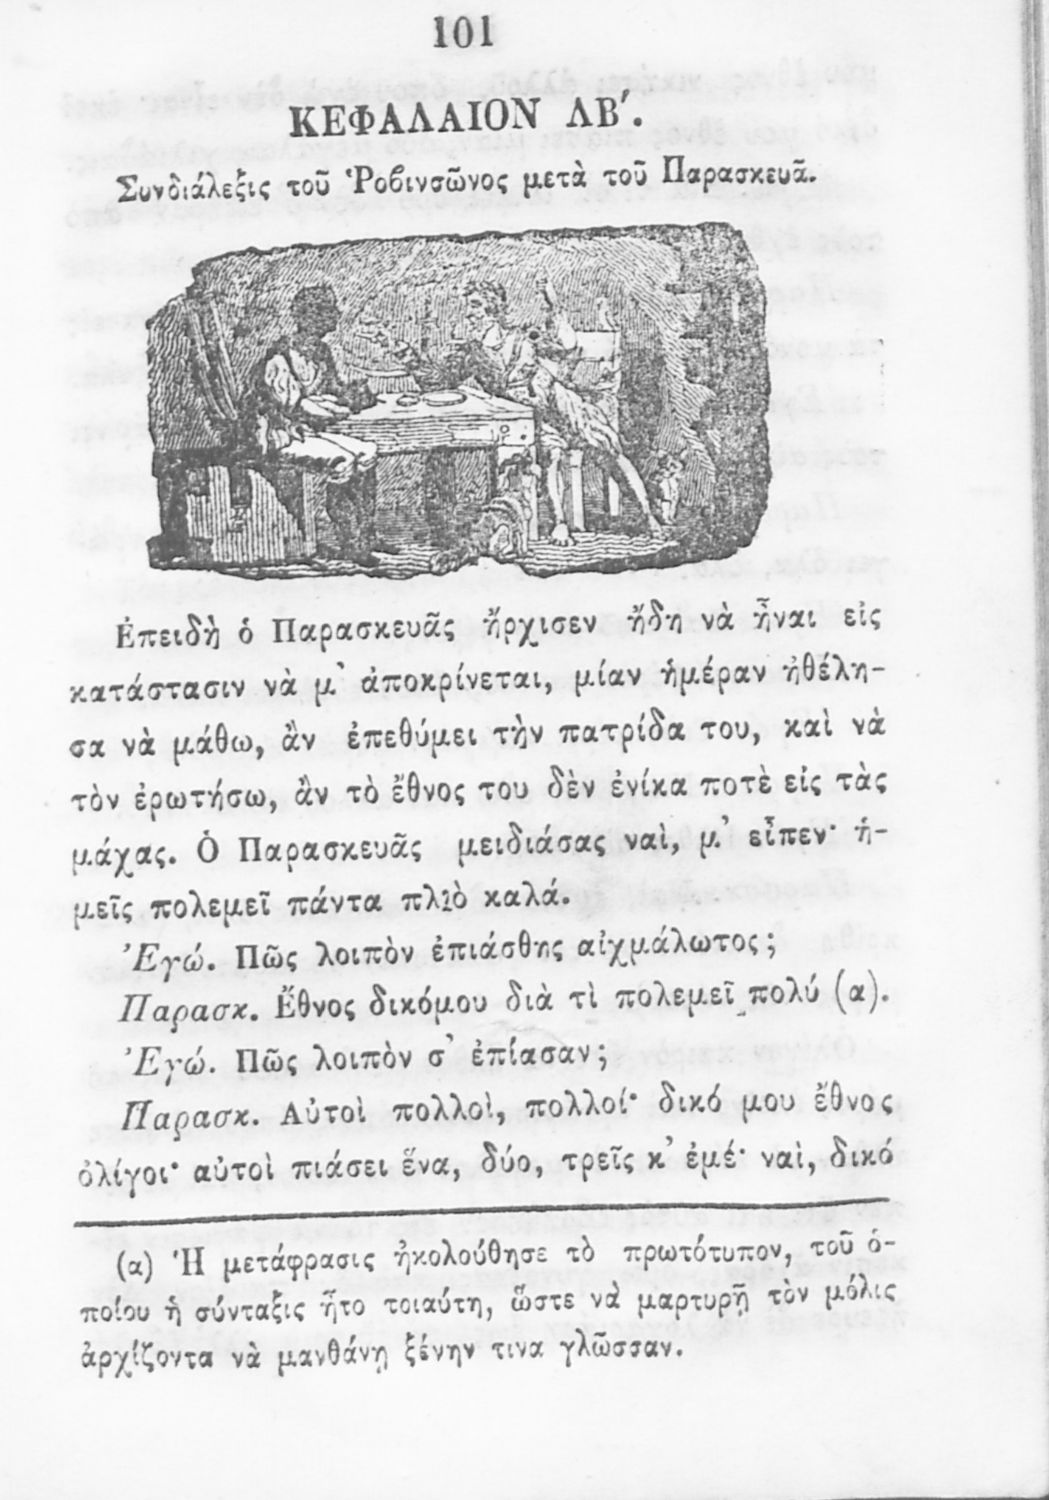 101
ΚΕΦΑΛΑΙΟΝ ΛΒ΄.
Συνδιάλεξις τοῦ Ῥοβινσῶνος μετὰ τοῦ Παρασκευᾶ.
Ἐπειδὴ ὁ Παρασκευᾶς ἤρχισεν ἤδη νὰ ἦναι εἰς
κατάστασιν νὰ μ᾽ ἀποκρίνεται, μίαν ἡμέραν ἠθέλη-
σα νὰ μάθω, ἂν ἐπεθύμει τὴν πατρίδα του, καὶ νὰ
τὸν ἐρωτήσω, ἂν τὸ ἔθνος του δὲν ἐνίκα ποτὲ εἰς τὰς
μάχας. Ὁ Παρασκευᾶς μειδιάσας ναὶ, μ᾽ εἶπεν· ἡ-
μεῖς πολεμεῖ πάντα πλιὸ καλά.
Ἐγώ. Πῶς λοιπὸν ἐπιάσθης αἰχμάλωτος;
Παρασκ. Ἔθνος δικόμου διὰ τὶ πολεμεῖ πολύ (α).
Ἐγώ. Πῶς λοιπὸν σ᾽ ἐπίασαν;
Παρασκ. Αὐτοὶ πολλοὶ, πολλοί· δικό μου ἔθνος
ὀλίγοι· αὐτοὶ πιάσει ἕνα, δύο, τρεῖς κ᾽ ἐμέ· ναὶ, δικό
(α) Ἡ μετάφρασις ἠκολούθησε τὸ πρωτότυπον, τοῦ ὁ-
ποίου ἡ σύνταξις ἦτο τοιαύτη, ὥστε νὰ μαρτυρῇ τὸν μόλις
ἀρχίζοντα νὰ μανθάνῃ ξένην τινα γλῶσσαν.